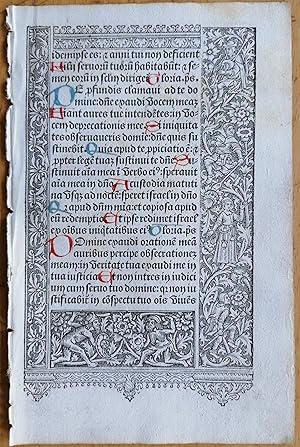 idem ipse es: ⁊ anni tui non deficient
Filii seruoꝝ tuoꝝ habitabūt: ⁊ se
men eoꝝ in secl̄m dirigeť Gloria.ps.
De profundis clamaui ad te do
mine:dn̄e exaudi vocem meā
Fiant aures tue intendētes: in vo
cem deprecationis mee Si iniquita
tes obseruaueris domine: dn̄e quis su
stinebit Quia apud te ꝓpiciatio ē: ⁊
ꝓpter legē tuā sustinui te dn̄e Su
stinuit aīa mea ī verbo eiꝰ: sperauit
aīa mea in dn̄o A custodia matuti
na vsqꝫ ad noctē: speret israel in dn̄o
Quia apud dn̄m mīa: ⁊ copiosa apud
eū redemptio Et ipse redimet israel
ex oībus iniqtatibus eiꝰ Gloria.ps.
Domine exaudi oratiōnē meā
auribus percipe obsecrationeꝫ
meam: in veritate tua exaudi me in
tua iusticia Et non intres in iudici
um cum seruo tuo domine: qꝛ non iu
stificabit̄ in cōspectu tuo oīs viuēs